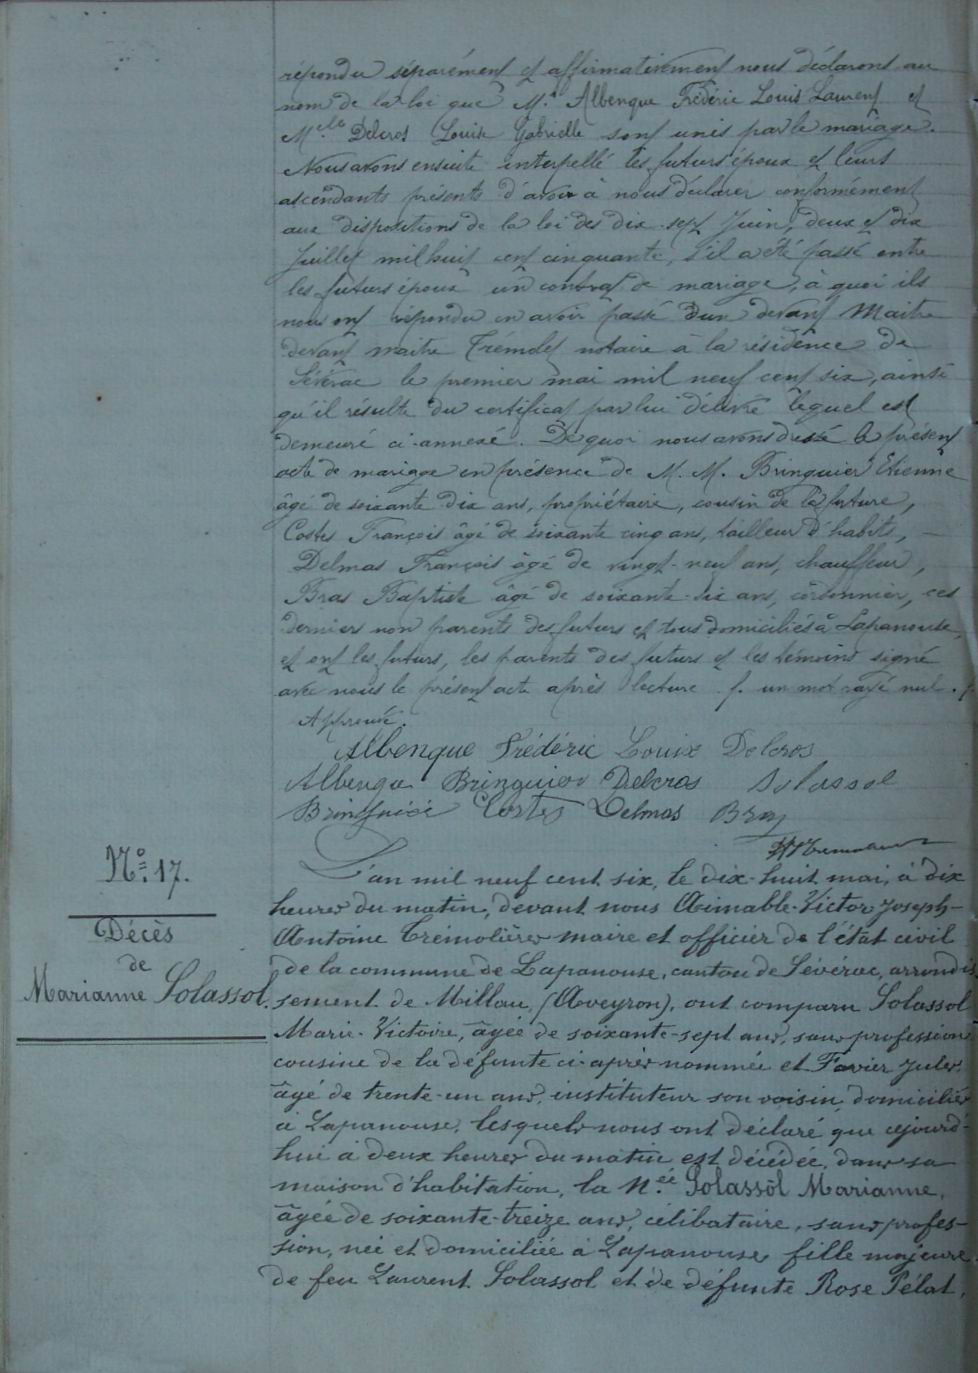 répondu séparément et affirmativement nous déclarons au
nom de la loi que Mr. Albenque Frédéric Louis Laurent et
Melle Delcros Louise Gabrielle sont unis par le mariage.
Nous avons ensuite interpellé les futurs époux et leurs
ascendants présents d'avoir à nous déclarer conformément
aux dispositions de la loi des dix-sept Juin, deux et dix
Juillet mil huit cent cinquante, s'il a été passé entre
les futurs époux un contrat de mariage, à quoi ils
nous ont répondu en avoir passé un devant Maitre
devant maitre Trémolet notaire à la résidence de
Sévérac le premier mai mil neuf cent six, ainsi
qu'il résulte du certificat par lui délivré lequel est
demeuré ci-annexé. De quoi nous avons dressé le présent
acte de mariage en présence de M. M. Bringuier Etienne
âgé de soixante dix ans, propriétaire, cousin de la future,
Costes François âgé de soixante cinq ans, tailleur d'habits, —
Delmas François âgé de vingt-neuf ans, chauffeur,
Bras Baptiste âgé de soixante-six ans, cordonnier, ces
derniers non parents des futurs et tous domiciliés à Lapanouse,
et ont les futurs, les parents des futurs et les témoins signé
avec nous le présent acte après lecture. f. un mot rayé nul. f.
Approuvé.
Albenque Frédéric Louise Delcros
Albenque Bringuier Delcros Solassol
Bringuier Costes Delmas Bras
L'an mil neuf cent six, le dix-huit mai, à dix
heures du matin, devant nous Aimable-Victor Joseph-
Antoine Trémolières maire et officier de l'état civil
de la commune de Lapanouse, canton de Sévérac, arrondis
sement de Millau, (Aveyron), ont comparu Solassol
Marie-Victoire, âgée de soixante-sept ans, sans profession,
cousine de la défunte ci-après nommée et Favier Jules,
âgé de trente-un ans, instituteur son voisin, domiciliés
à Lapanouse, lesquels nous ont déclaré que cejourd'-
hui à deux heures du matin est décédée, dans sa
maison d'habitation, la N.ée Solassol Marianne,
âgée de soixante-treize ans, célibataire, sans profes-
sion, née et domiciliée à Lapanouse, fille majeure
de feu Laurent Solassol et de défunte Rose Pélat,
No. 17.
Décès
de
Marianne Solassol.